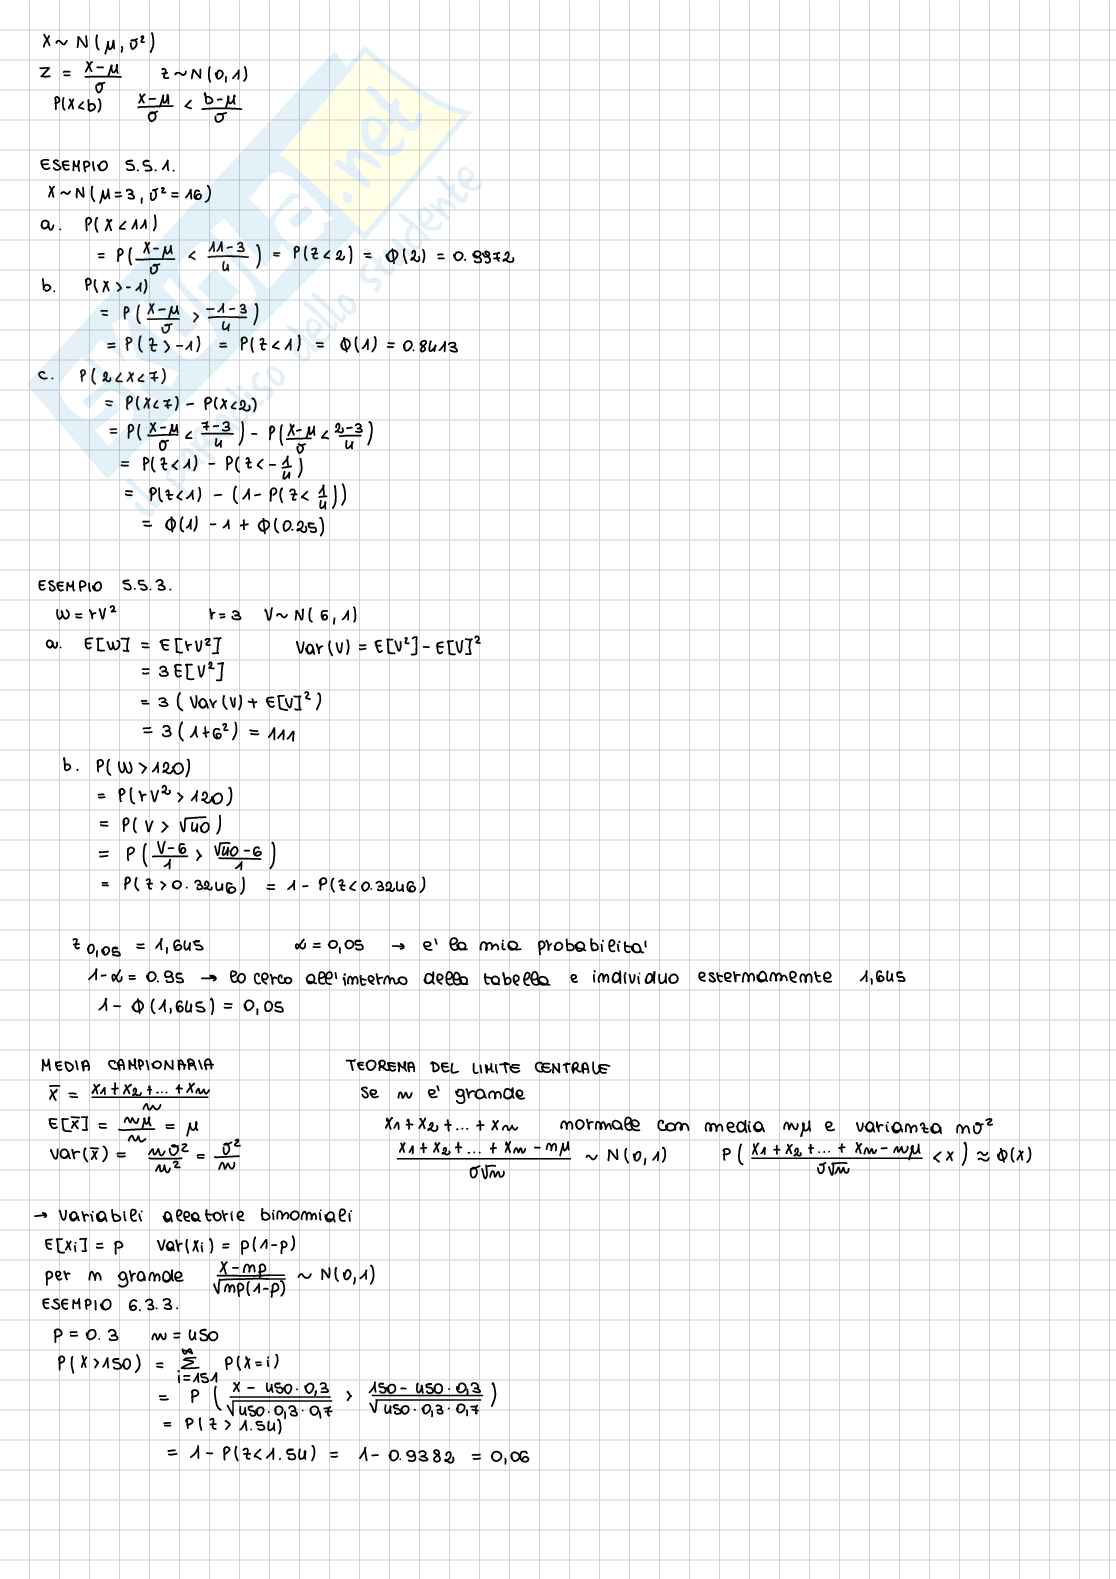 X ~ N(μ, σ²)
Z = (X-μ)/σ   Z ~ N(0,1)
P(X<b)   (X-μ)/σ < (b-μ)/σ
ESEMPIO 5.5.1.
X ~ N(μ=3, σ²=16)
a. P(X<11)
= P((X-μ)/σ < (11-3)/4) = P(Z<2) = Φ(2) = 0.9972
b. P(X>-1)
= P((X-μ)/σ > (-1-3)/4)
= P(Z>-1) = P(Z<1) = Φ(1) = 0.8413
c. P(2<X<7)
= P(X<7) - P(X<2)
= P((X-μ)/σ < (7-3)/4) - P((X-μ)/σ < (2-3)/4)
= P(Z<1) - P(Z<-1/4)
= P(Z<1) - (1-P(Z<1/4))
= Φ(1) - 1 + Φ(0.25)
ESEMPIO 5.5.3.
W = rV²   r=3   V ~ N(6,1)
a. E[W] = E[rV²]   Var(V) = E[V²] - E[V]²
= 3E[V²]
= 3(Var(V) + E[V]²)
= 3(1+6²) = 111
b. P(W>120)
= P(rV²>120)
= P(V>√40)
= P((V-6)/1 > (√40-6)/1)
= P(Z>0.3246) = 1 - P(Z<0.3246)
z 0,05 = 1,645   α=0,05 → e' la mia probabilita'
1-α=0.95 → lo cerco all'interno della tabella e individuo esternamente 1,645
1 - Φ(1,645) = 0,05
MEDIA CAMPIONARIA   TEOREMA DEL LIMITE CENTRALE
X̄ = (X1+X2+...+Xn)/n   Se n e' grande
E[X̄] = nμ/n = μ   X1+X2+...+Xn normale con media nμ e varianza nσ²
Var(X̄) = nσ²/n² = σ²/n   (X1+X2+...+Xn-nμ)/(σ√n) ~ N(0,1)   P((X1+X2+...+Xn-nμ)/(σ√n) < x) ≈ Φ(x)
→ variabili aleatorie binomiali
E[Xi] = p   Var(Xi) = p(1-p)
per n grande (X-np)/√(np(1-p)) ~ N(0,1)
ESEMPIO 6.3.3.
P=0.3   n=450
P(X>150) = Σ_{i=151}^{∞} P(X=i)
= P((X-450·0,3)/√(450·0,3·0,7) > (150-450·0,3)/√(450·0,3·0,7))
= P(Z>1.54)
= 1 - P(Z<1.54) = 1 - 0.9382 = 0,06